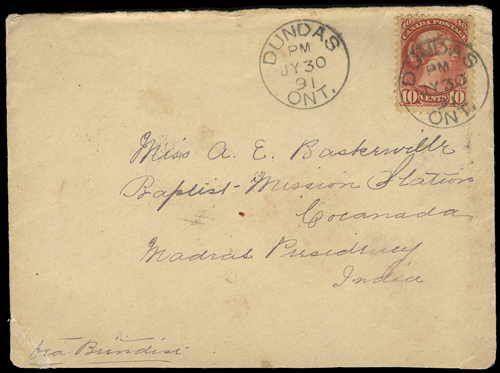 DUNDAS
PM
JY 30
91
ONT.
CANADA POSTAGE
10 CENTS 10
DUNDAS
PM
JY 30
ONT.
Miss A. E. Baskerville
Baptist Mission Station
Cocanada
Madras Presidency
India
via Brindisi